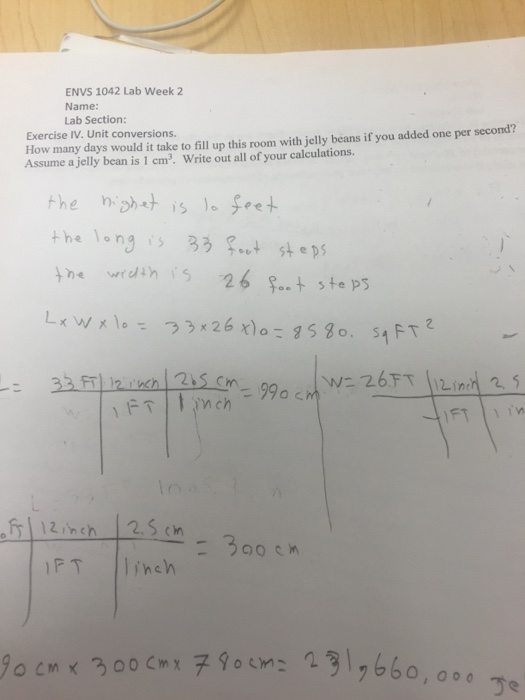 ENVS 1042 Lab Week 2
Name:
Lab Section:
Exercise IV. Unit conversions.
How many days would it take to fill up this room with jelly beans if you added one per second?
Assume a jelly bean is 1 cm³. Write out all of your calculations.
the highet is 10 feet
the long is 33 foot steps
the width is 26 foot steps
L x W x 10 = 33 x 26 x 10 = 8580. sqFT²
L = 33 FT | 12 inch | 2.5 cm = 990 cm | W = 26.FT | 12 inch | 2.5
1 FT | 1 inch | 1 FT | 1 in
FT | 12 inch | 2.5 cm = 300 cm
1 FT | 1 inch
90 cm x 300 cm x 780 cm = 231,660,000 je